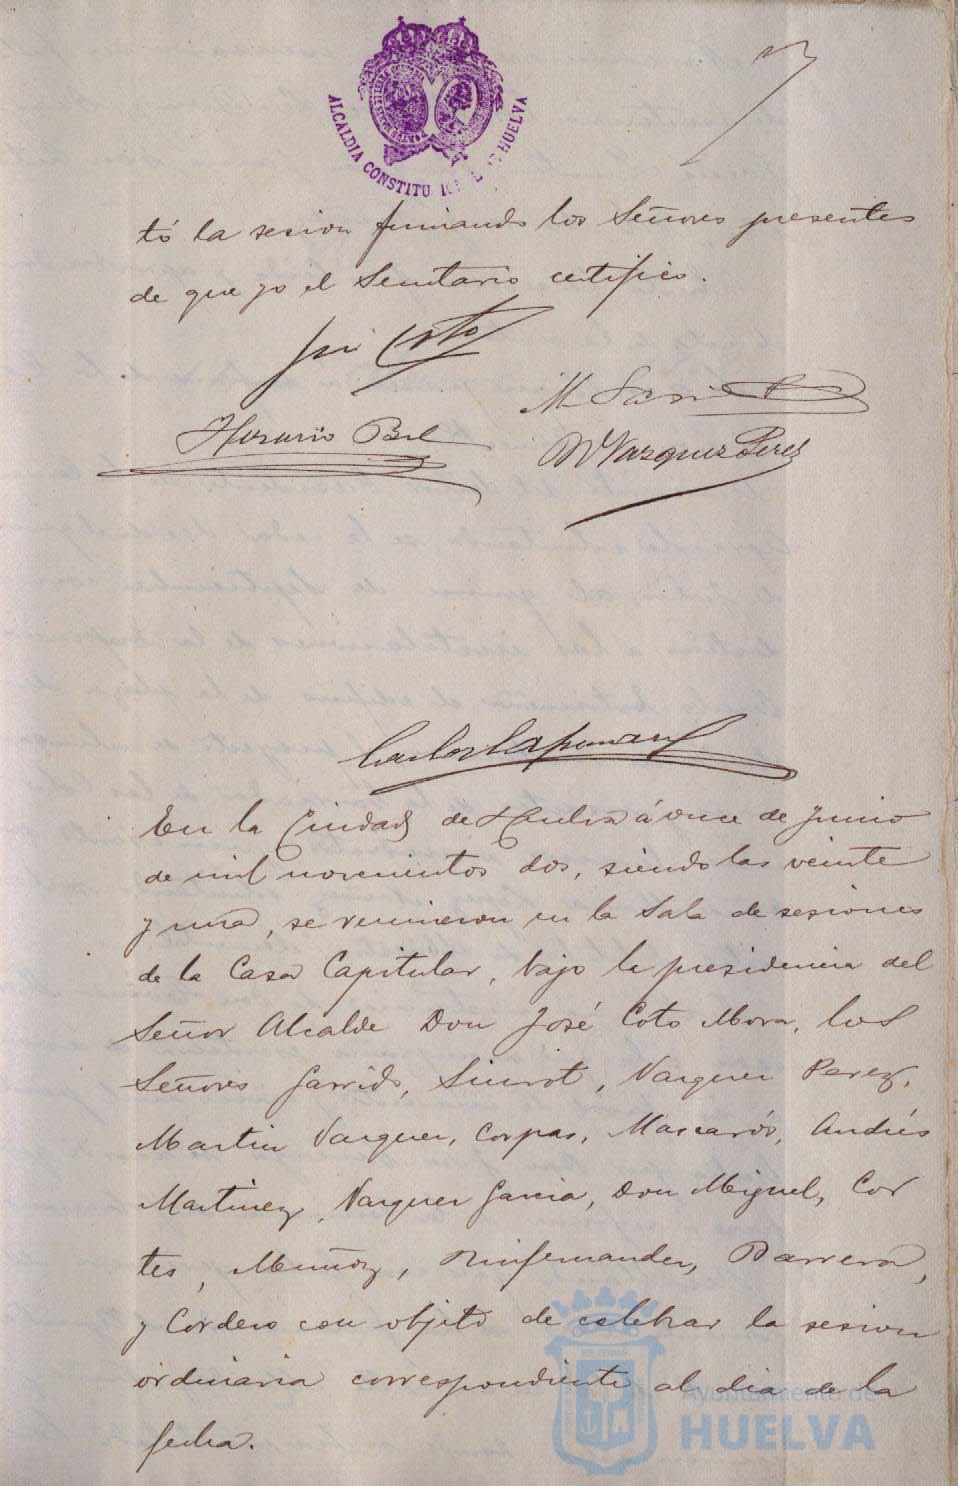 ALCALDIA CONSTITUCIONAL DE HUELVA
tó la sesion firmando los Señores presentes
de que yo el Secretario certifico.
José Coto
M Garrido
Horacio Bel
M Vazquez Perez
Carlos
En la Ciudad de Huelva á once de Junio
de mil novecientos dos, siendo las veinte
y una, se reunieron en la Sala de sesiones
de la Casa Capitular, bajo la presidencia del
Señor Alcalde Don José Coto Mora, los
Señores Garrido, Siurot, Vazquez Perez,
Martin Vazquez, Corpas, Mascarós, Andrés
Martinez, Vazquez Garcia, Don Miguel, Cor
tes, Muñoz, Rinfernandez, Barrera,
y Cordero con objeto de celebrar la sesion
ordinaria correspondiente al dia de la
fecha.
Ayuntamiento de
HUELVA